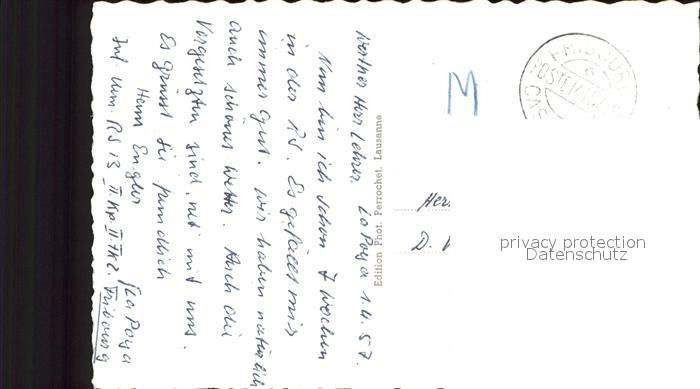 Werther Herr Lehrer. La Poya 1.4.57.
Nun bin ich schon 7 Wochen
in der RS. Es gefällt mir
immer gut. Wir haben natürlich
auch schönes Wetter. Auch die
Vorgesetzten sind nett mit uns.
Es grüsst Sie freundlich
Henri Engler
Inf. Uem. RS 13 II. Kp. II. Zk 2. La Poya
Fribourg
Edition Phot. Perrochet, Lausanne
M
FRIBOURG
Her
D.
privacy protection
Datenschutz